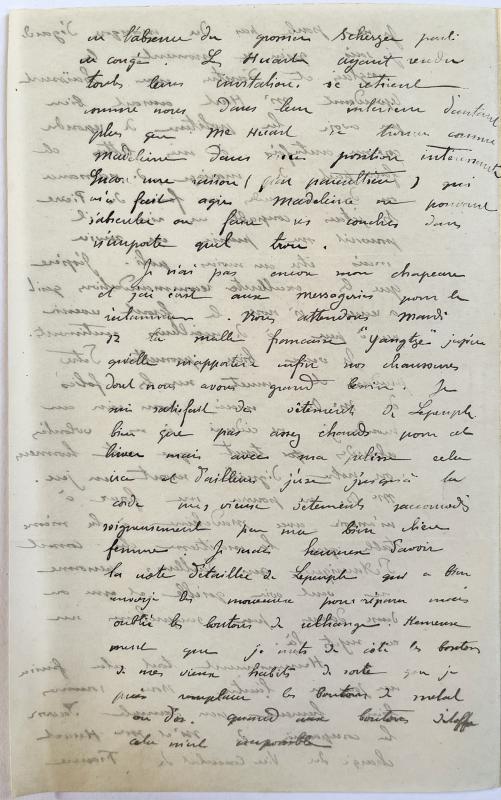 en l'absence du grossier Scherzer parti
en congé. Les Huart ayant rendu
toutes leurs invitations se retirent
comme nous dans leur intérieur d'autant
plus que Me Huart se trouve comme
Madeleine dans une position intéressante
Encore une raison ( ) qui
m'a fait agir Madeleine ne pouvant
s'absenter ou faire ses couches dans
n'importe quel trou.
Je n'ai pas encore mon chapeau
et j'ai écrit aux messageries pour le
réclamer. Nous attendons Mardi
12 la malle française "Yangtze" j'espère
qu'elle m'apportera enfin nos chaussures
dont nous avons grand besoin. Je
suis satisfait des vêtements de Lepeuple
bien que pas assez chauds pour cet
hiver mais avec ma pelisse cela
ira et d'ailleurs j'use jusqu'à la
corde mes vieux vêtements raccomodés
soigneusement par ma bien chère
femme. Je serais heureux d'avoir
la note détaillée de Lepeuple qui a bien
envoyé les morceaux pour réparer mais
oublié les boutons de rechange. Heureuse
ment que je mets de côté les boutons
de mes vieux habits de sorte que je
puis remplacer les boutons de métal
ou d'os. quand aux boutons d'étoffe
cela m'est impossible